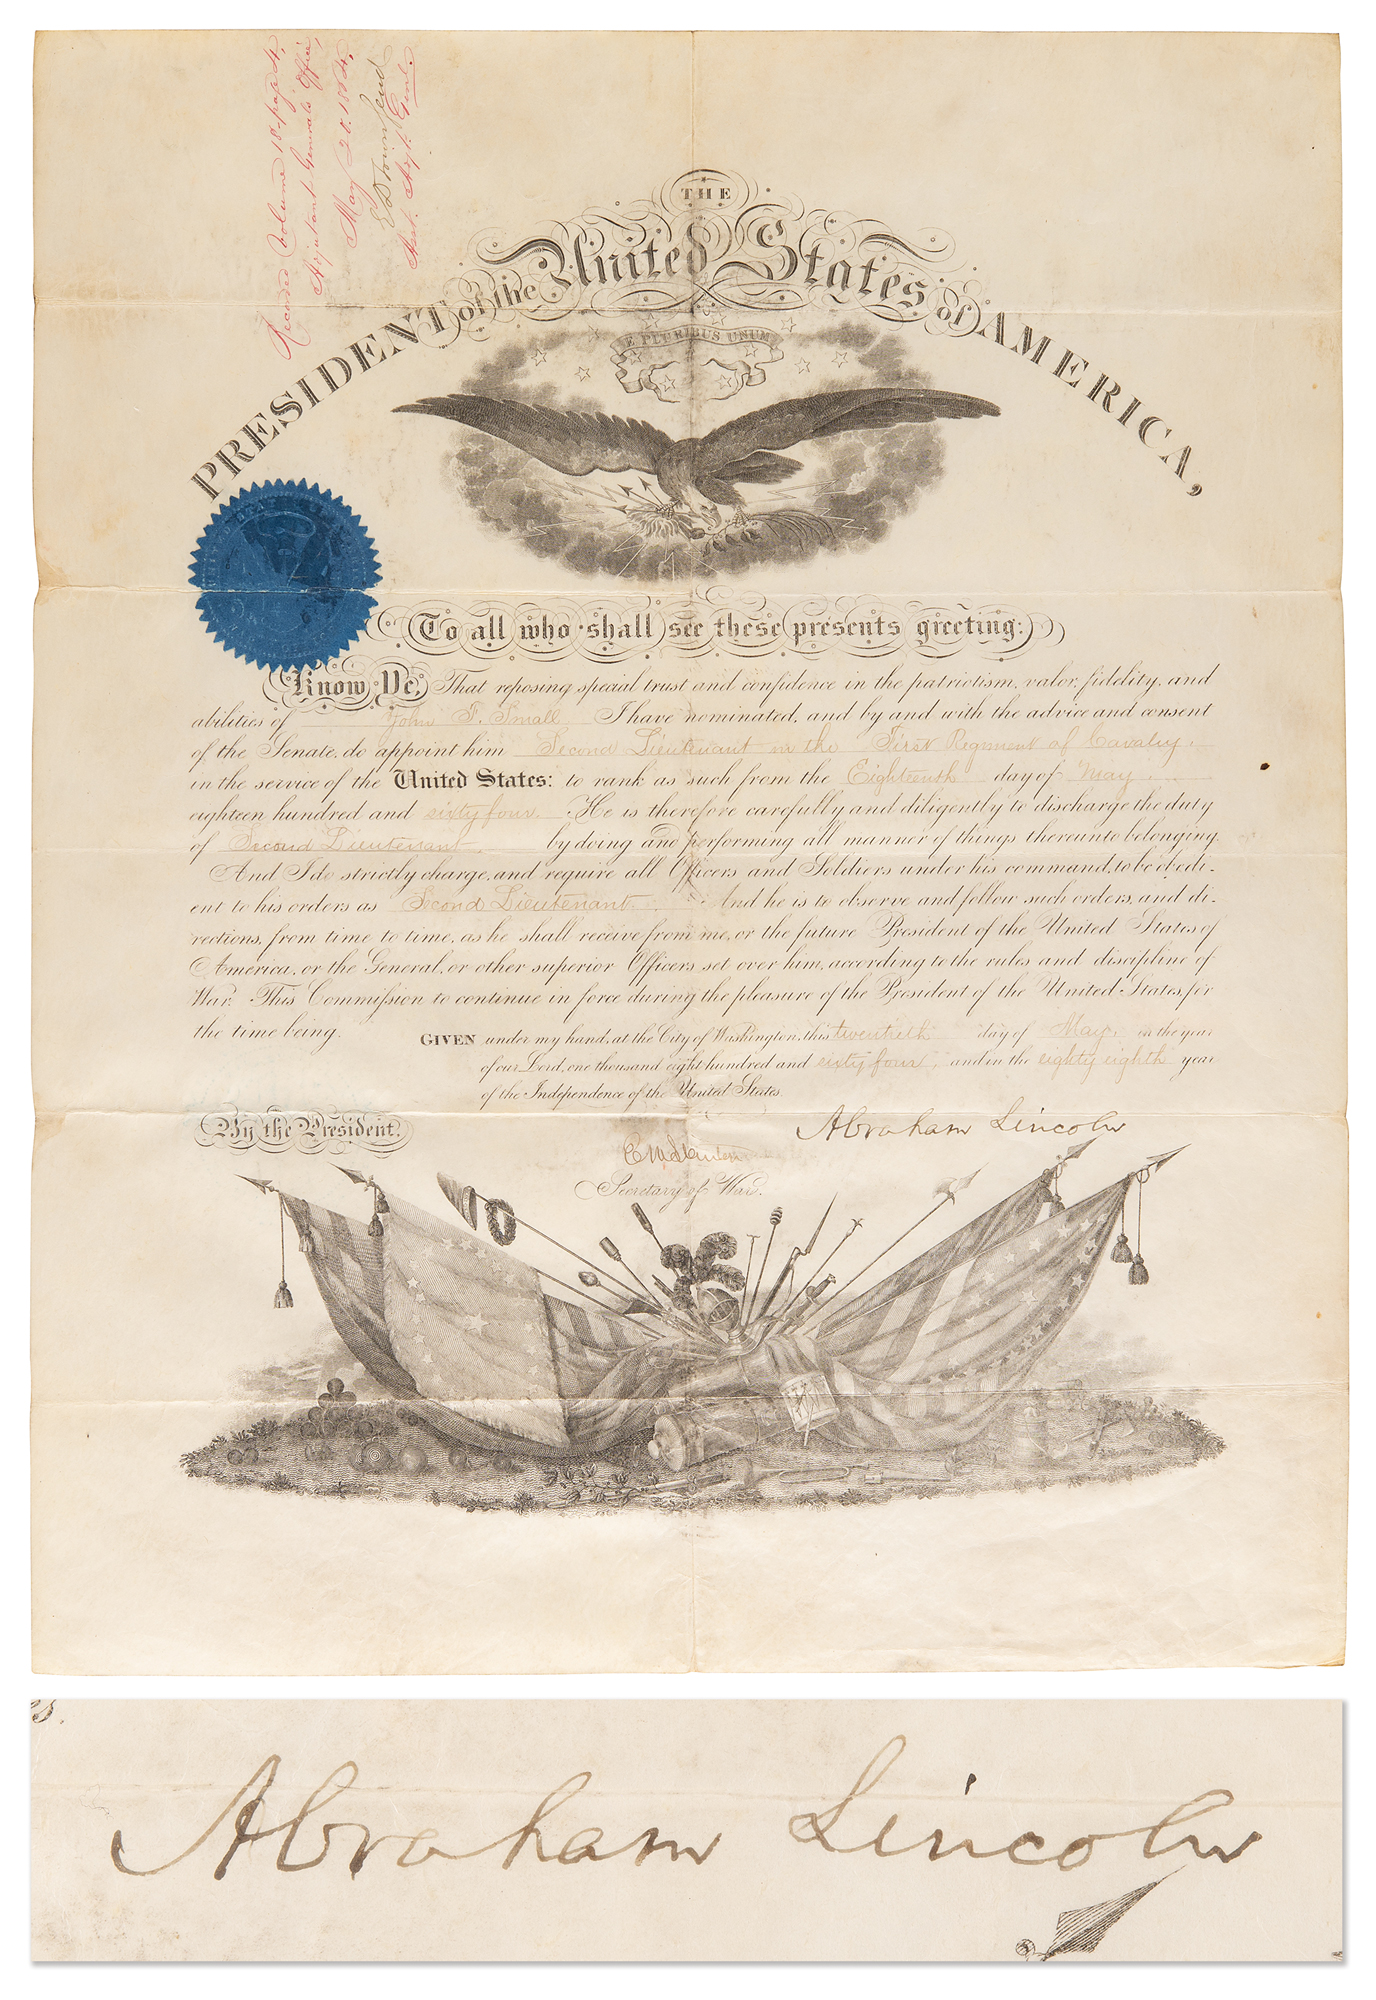 Recorded Volume 18 page 4,
Adjutant Generals Office,
May 20. 1864.
E D Townsend
Asst. Adjt. Genl.
THE
PRESIDENT of the United States of AMERICA,
E PLURIBUS UNUM
To all who shall see these presents greeting:
Know Ye, That reposing special trust and confidence in the patriotism, valor, fidelity, and
abilities of John F. Small I have nominated, and by and with the advice and consent
of the Senate, do appoint him Second Lieutenant in the First Regiment of Cavalry.
in the service of the United States: to rank as such from the Eighteenth day of May.
eighteen hundred and sixty four. He is therefore carefully and diligently to discharge the duty
of Second Lieutenant. by doing and performing all manner of things thereunto belonging.
And I do strictly charge, and require all Officers and Soldiers under his command, to be obedi-
ent to his orders as Second Lieutenant. And he is to observe and follow such orders, and di-
rections, from time to time, as he shall receive from me, or the future President of the United States of
America, or the General, or other superior Officers set over him, according to the rules and discipline of
War. This Commission to continue in force during the pleasure of the President of the United States, for
the time being.
GIVEN under my hand, at the City of Washington, this twentieth day of May. in the year
of our Lord, one thousand eight hundred and sixty four, and in the eighty eighth year
of the Independence of the United States.
By the President.
Abraham Lincoln
Edwin M Stanton
Secretary of War.
es.
Abraham Lincoln